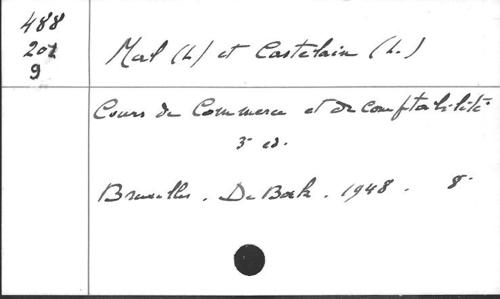 488
201
9
Mal (L) et Castelain (L.)
Cours de Commerce et de comptabilité
3e ed.
Bruxelles. De Boek. 1948. 8°